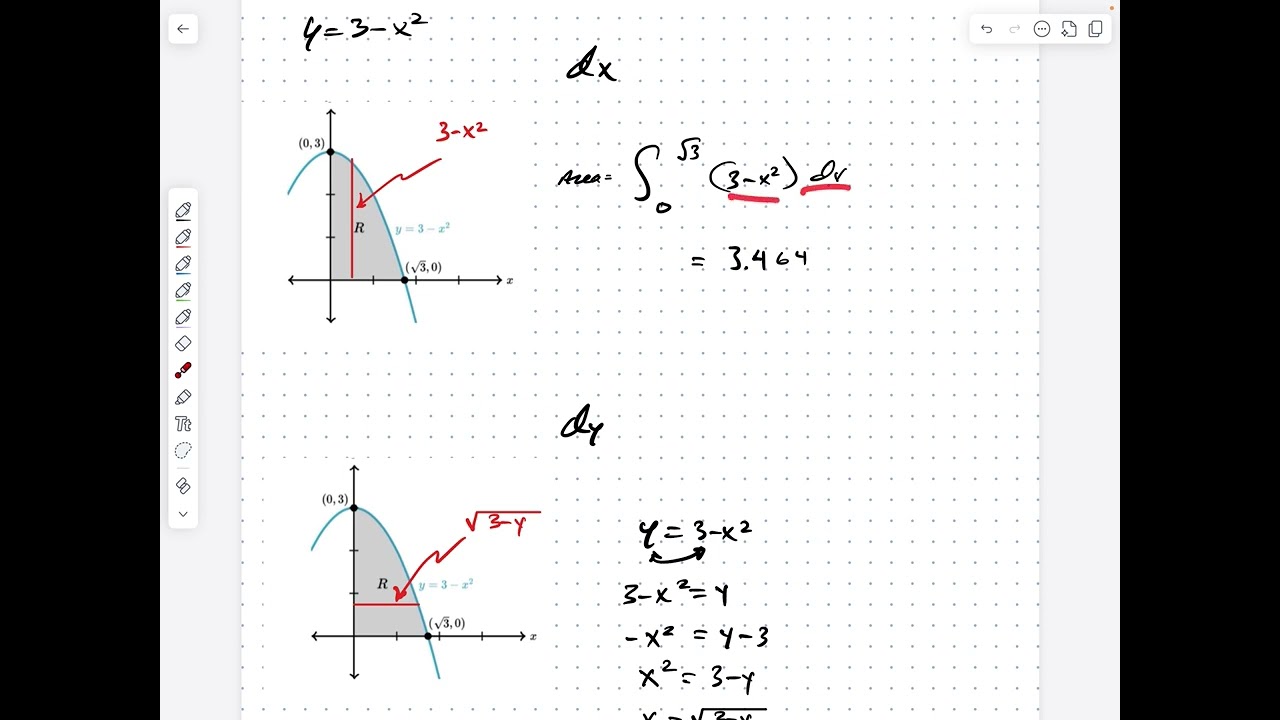 y = 3 - x²
dx
3 - x²
(0, 3)
R
y = 3 − x²
(√3, 0)
x
Area = ∫₀^√3 (3 - x²) dx
= 3.464
dy
√(3-y)
(0, 3)
R
y = 3 − x²
(√3, 0)
x
y = 3 - x²
3 - x² = y
- x² = y - 3
x² = 3 - y
x = √(3-y)
Tt